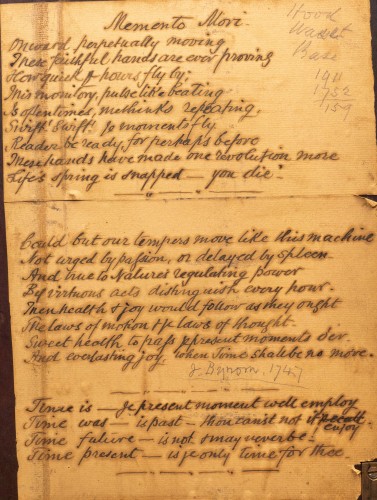 Memento Mori.
Hood
Onward perpetually moving
These faithful hands are ever proving
How quick ye hours fly by;
This monitory, pulse like beating
Is oftentimes, methinks repeating.
Swift. Swift. ye moments fly.
Reader be ready, for perhaps before
These hands have made one revolution more
Life's spring is snapped — you die.
Base
1911
1752
159
Could but our tempers move like this machine
Not urged by passion, or delayed by spleen
And true to Nature's regulating power
By virtuous acts distinguish every hour.
Then health & joy would follow as they ought
The laws of motion & ye laws of thought.
Sweet health to pass ye present moments o'er
And everlasting joy, when Time shall be no more.
J. Byrom. 1747
Time is — ye present moment well employ
Time was — is past — thou canst not it enjoy
Time future — is not & may never be —
Time present — is ye only time for thee.